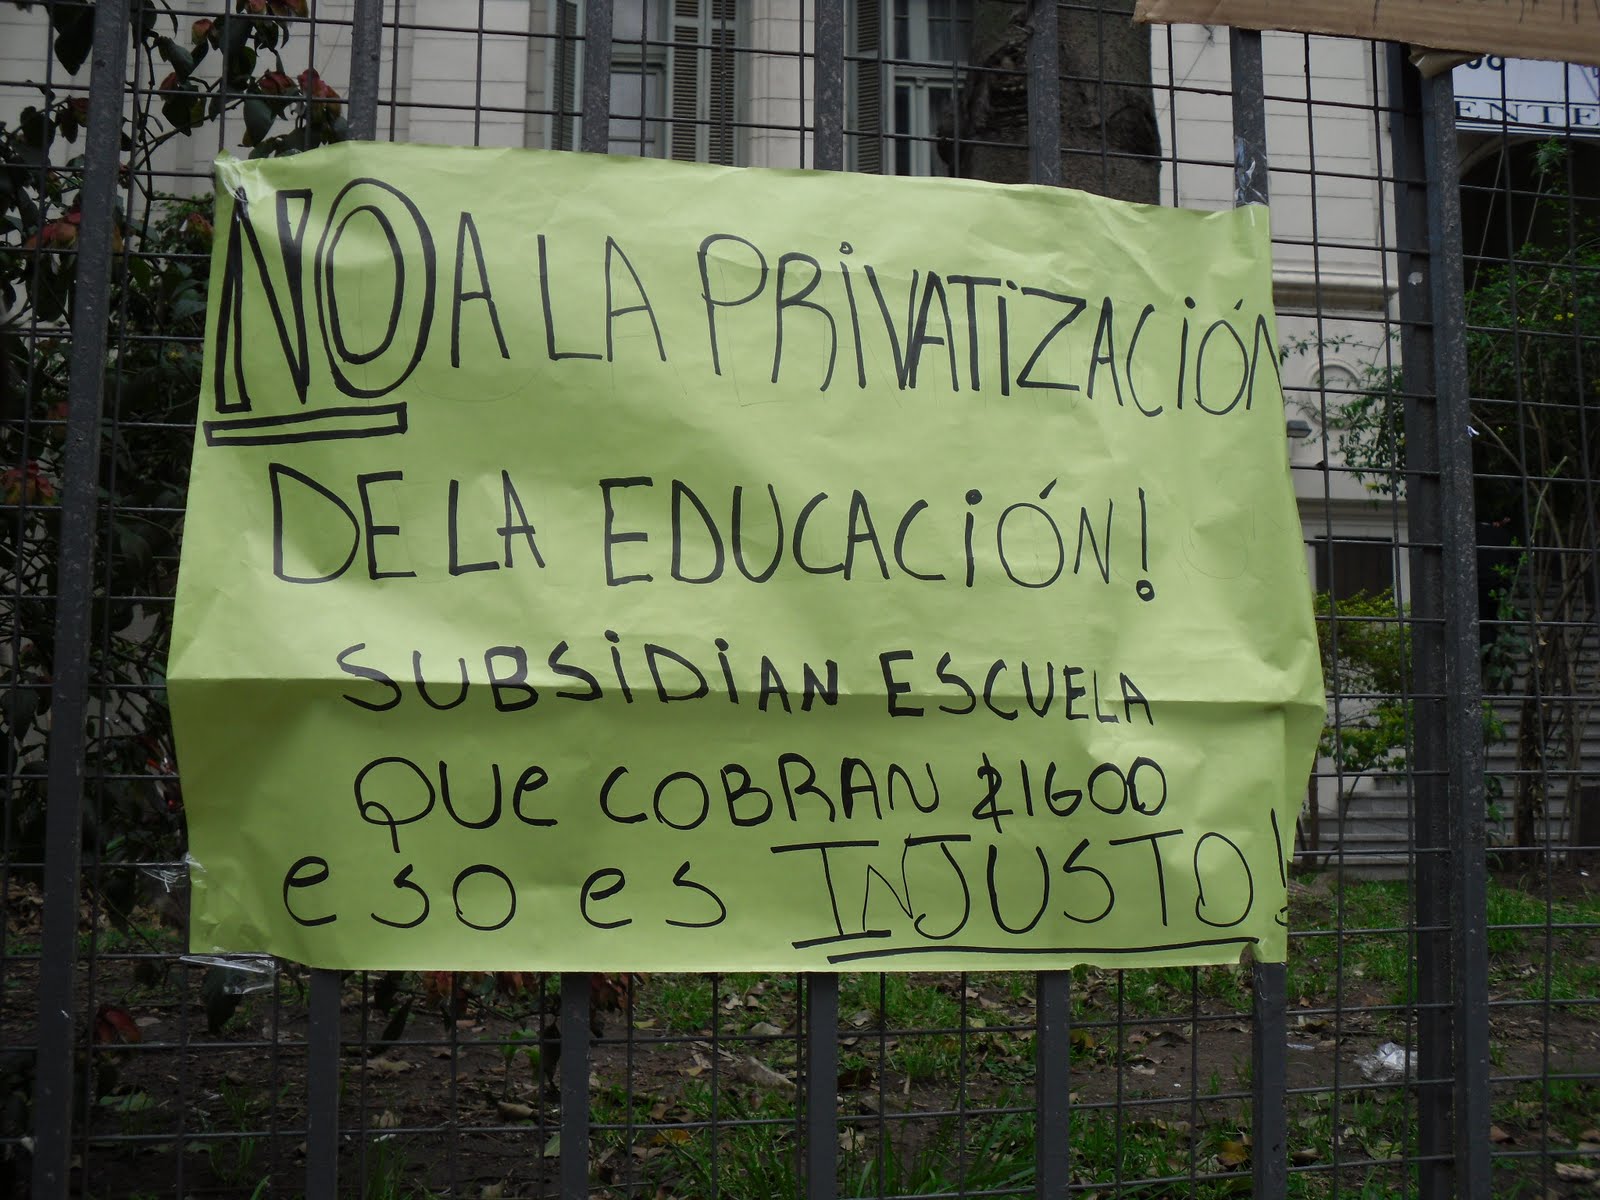 ENTE
NO A LA PRIVATIZACIÓN
DE LA EDUCACIÓN!
SUBSIDIAN ESCUELA
QUE COBRAN $1600
eso es INJUSTO!